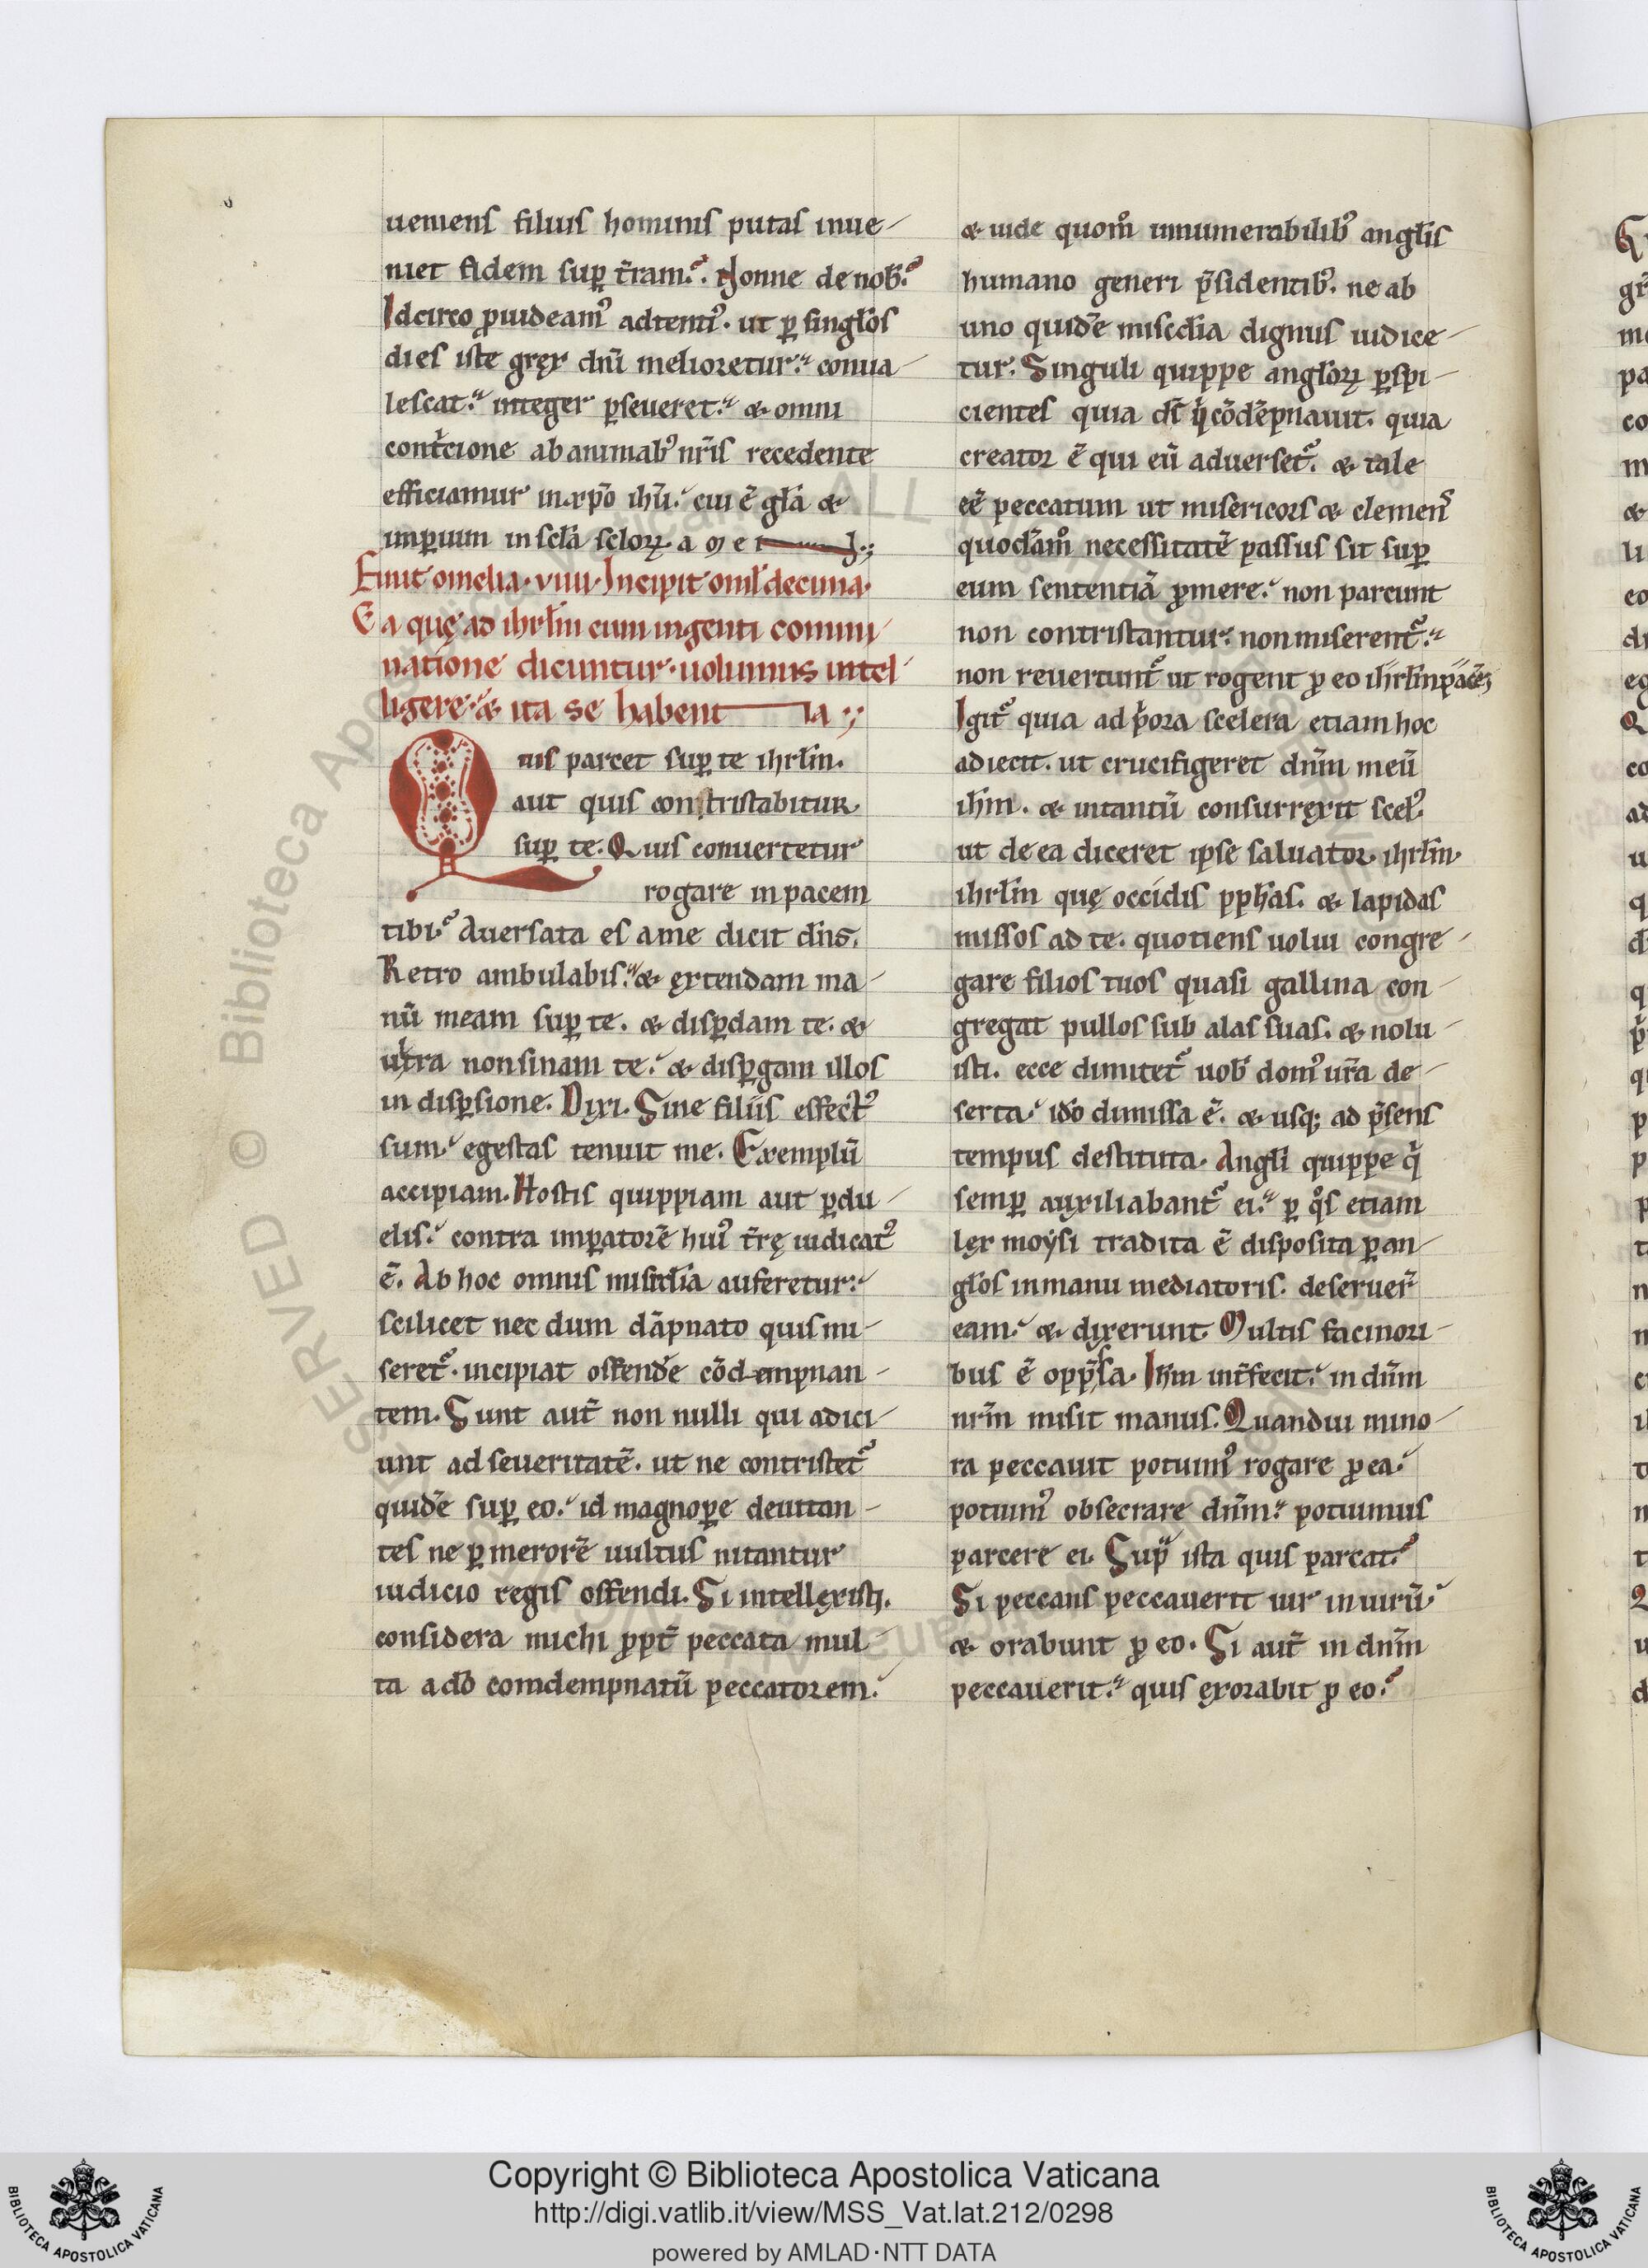 ueniens filius hominis putas inue-
niet fidem sup t̄ram. Nonne de nob.
Idcirco ꝓuideam᾽ adtenti᾽. ut ꝑ singl̄os
dies iste gręx dn̄i melioretur. conua-
lescat. integer ꝑseueret. & omni
contͥcione ab animab᾽ nr̄is recedente
efficiamur in xp̄o ih̄u. cui ē gl̄a &
imꝑium in scl̄a sclor̄ꝝ. amen.
Finit omelia. viiii. Incipit oml̄ decima.
Ea quę ad ihrl̄m cum ingenti commi
natione dicuntur. uolumus intel-
ligere. & ita se habent ia.
Quis parcet suꝑ te ihrl̄m.
aut quis constristabitur
suꝑ te. Quis conuertetur
rogare in pacem
tibi. Auersata es a me dicit dn̄s.
Retro ambulabis. & ęxtendam ma-
nū meam suꝑ te. & disꝑdam te. &
ultra non sinam te. & disꝑgam illos
in disꝑsione. Dixi. Sine filiis effect᾽
sum. egestas tenuit me. Exemplū
accipiam. Hostis quippiam aut ꝑdu-
elis. contra imꝑatorē hui᾽ t̄rę iudicat᾽
ē. Ab hoc omnis misc̄dia auferetur.
scilicet nec dum dāpnato quis mi-
seret᾽. incipiat offendͤe cōdempnan-
tem. Sunt aut̄ non nulli qui adici-
unt ad seueritatē. ut ne contristet᾽
quidē suꝑ eo. id magnoꝑe deuitan-
tes ne ꝑ merorē uultus nitantur
iudicio regis offendi. Si intellęxisti.
considera michi ꝓpt̄ peccata mul-
ta a dō comdempnatū peccatorem.
& uide quom̊ innumerabilib᾽ angl̄is
humano generi p̄sidentib᾽. ne ab
uno quidē misc̄dia dignus iudice-
tur. Singuli quippe angl̄orꝝ ꝑspi-
cientes quia ds̄ qͥ cōdēpnauit. quia
creator ē qui eū aduerset᾽. & tale
eē peccatum ut misericors & clemens
quodam̊ necessitatē passus sit suꝑ
eum sententiā ꝓmere. non parcunt
non contristantur. non miserent᾽.
non reuertunt᾽ ut rogent ꝓ eo ihrl̄m pacē.
Igit᾽ quia ad pͥora scelera etiam hoc
adiecit. ut crucifigeret dn̄m meū
ih̄m. & in tantū consurręxit scel᾽.
ut de ea diceret ipse saluator. ihrl̄m
ihrl̄m quę occidis pꝓh̄as. & lapidas
missos ad te. quotiens uolui congre-
gare filios tuos quasi gallina con-
gregat pullos sub alas suas. & nolu-
isti. ecce dimitet᾽ uob̄ dom᾽ ur̄a de-
serta. idō dimissa ē. & usq; ad p̄sens
tempus destituta. Angl̄i quippe qͥ
semꝑ auxiliabant᾽ ei. ꝑ qͦs etiam
lęx moẏsi tradita ē disposita ꝑ an-
gl̄os in manu mediatoris. deseruer̄
eam. & dixerunt. Multis facinori-
bus ē opp̄sa. Ih̄m int̄fecit. in dn̄m
nr̄m misit manus. Quandiu mino-
ra peccauit potuim᾽ rogare ꝓ ea.
potuim᾽ obsecrare dn̄m. potuimus
parcere ei. Supͣ ista quis parcat.
Si peccans peccauerit uir in uirū.
& orabunt ꝓ eo. Si aut̄ in dn̄m
peccauerit. quis ęxorabit ꝓ eo.
Copyright © Biblioteca Apostolica Vaticana
http://digi.vatlib.it/view/MSS_Vat.lat.212/0298
powered by AMLAD·NTT DATA
BIBLIOTECA APOSTOLICA VATICANA
BIBLIOTECA APOSTOLICA VATICANA